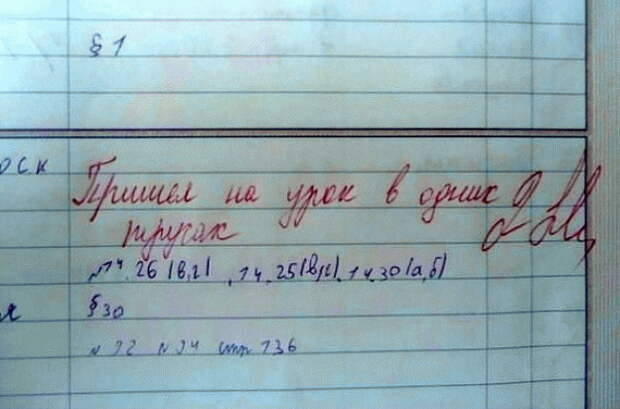 § 1
оск
Пришел на урок в одних
трусах
№14.26(в,г), 14.25(в,г), 14.30(а,б)
я §30
стр 136